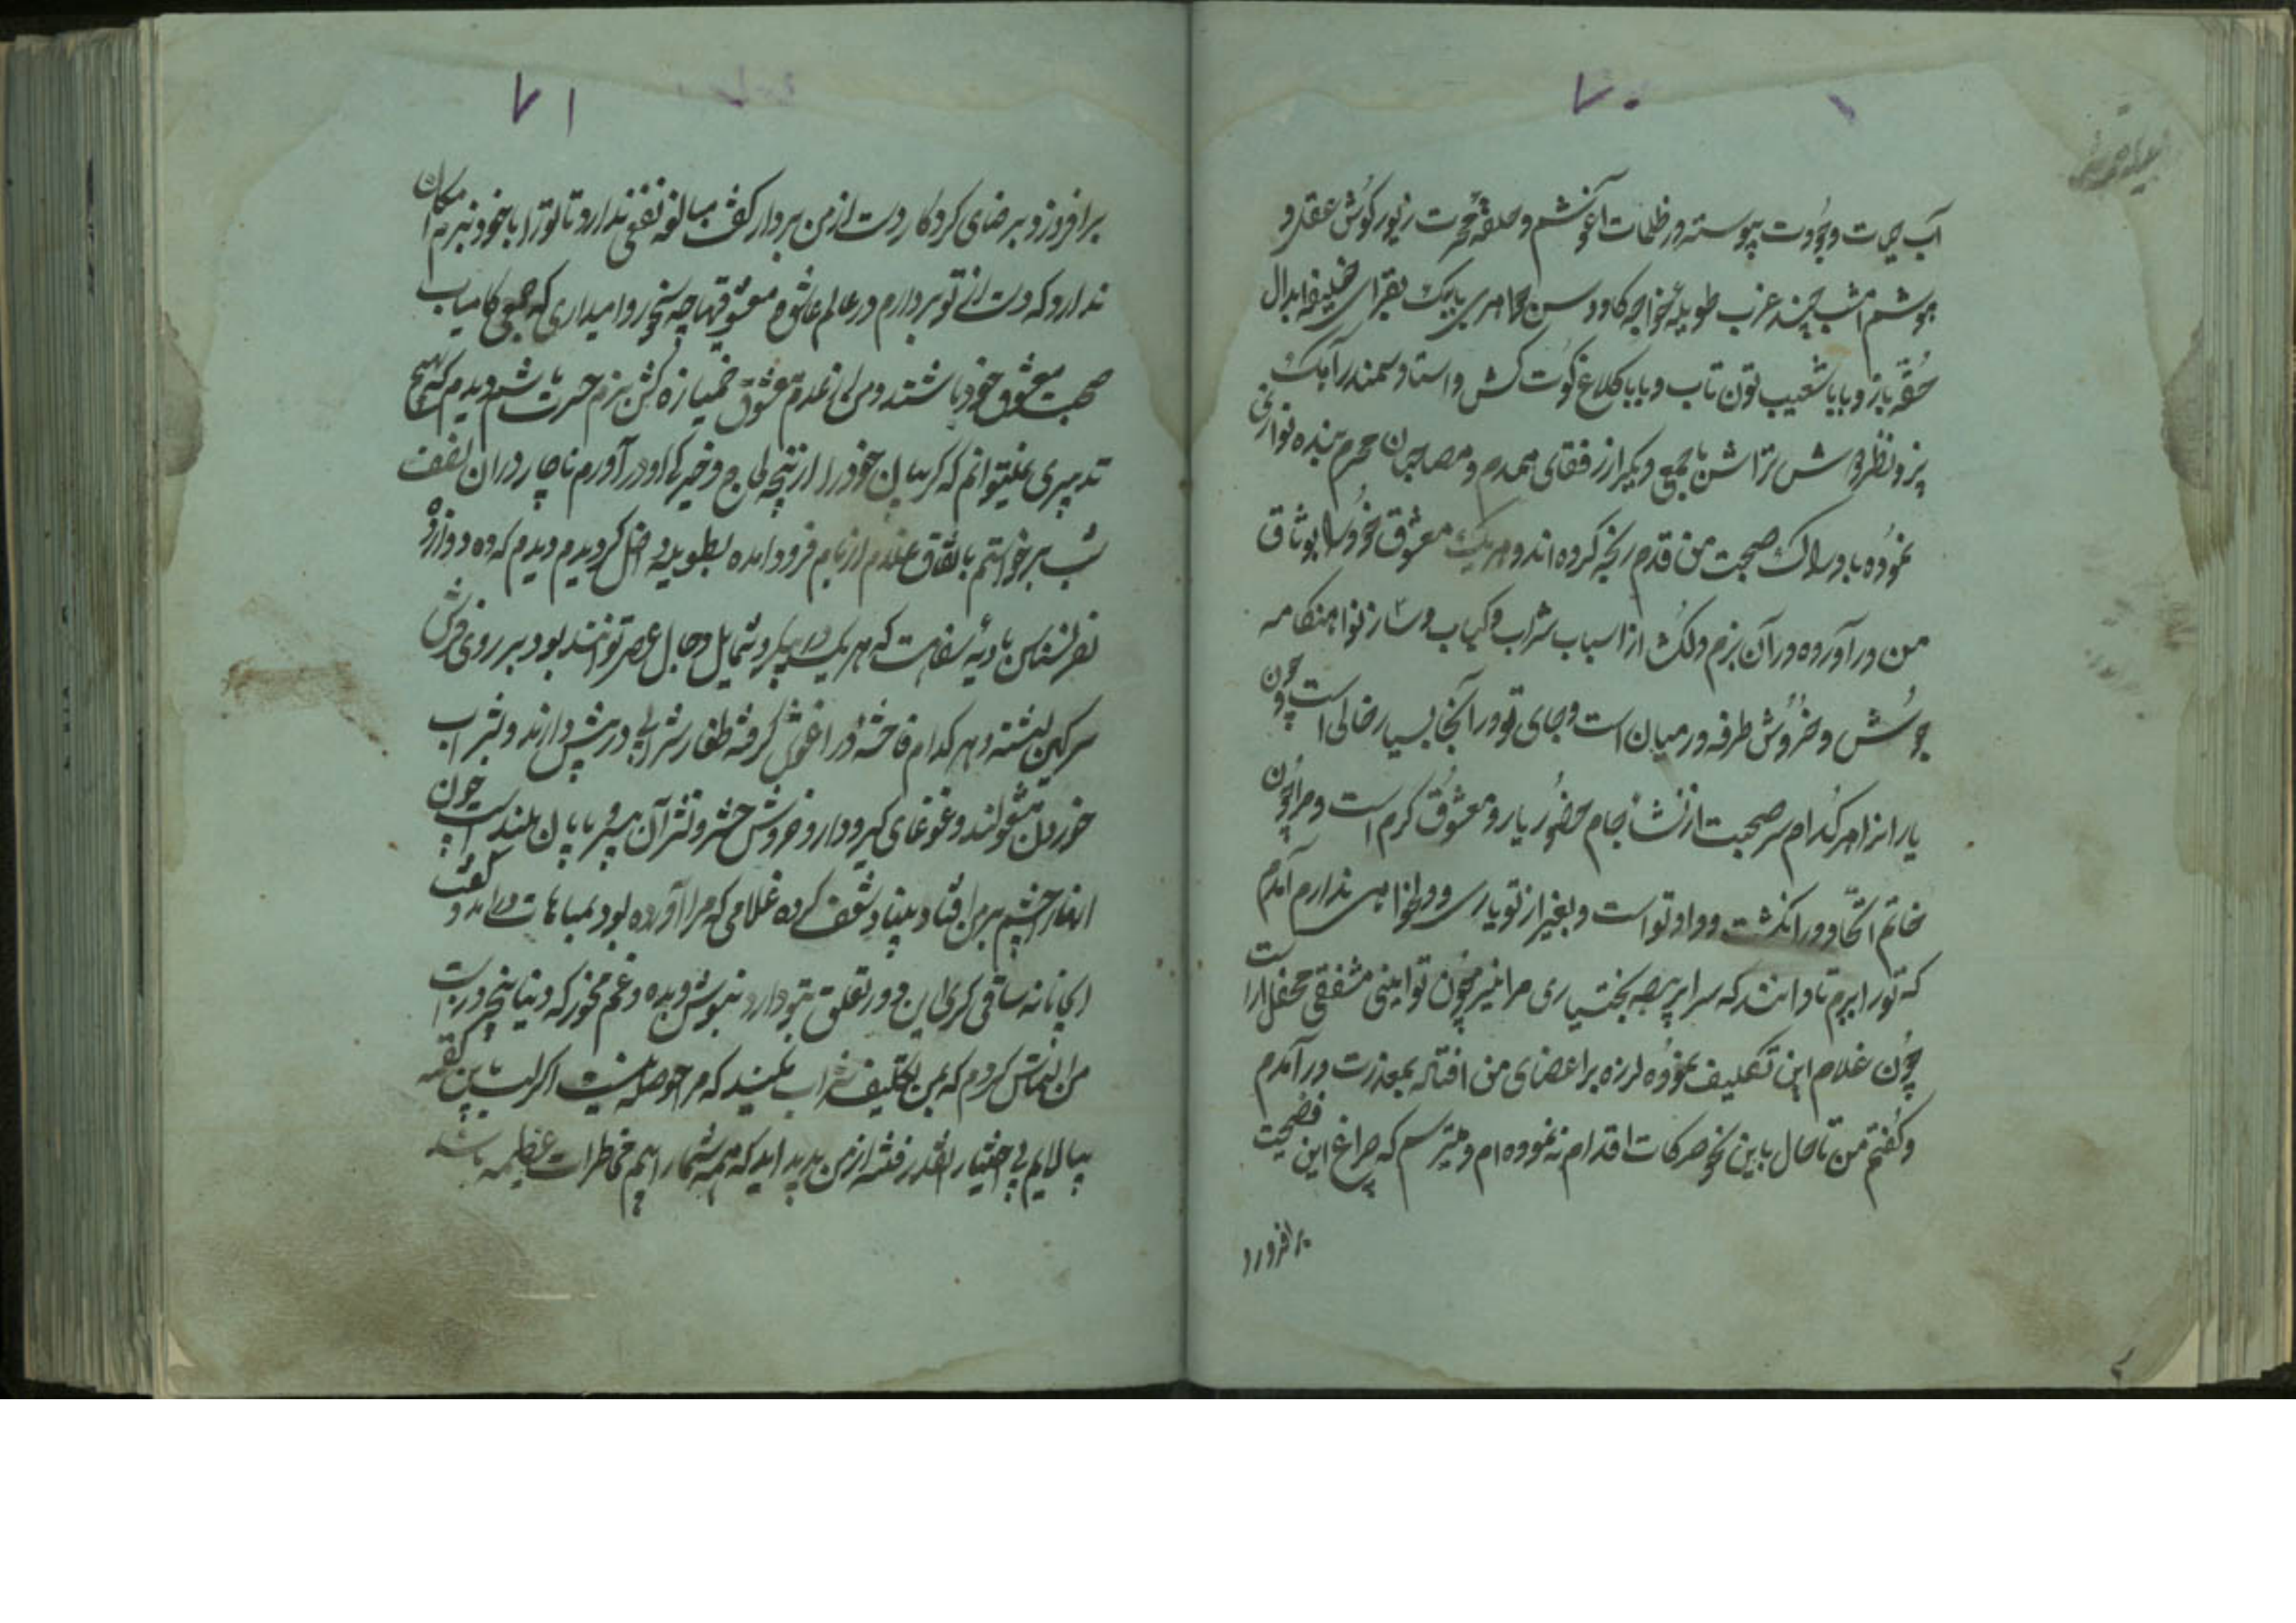 ۷۰
آب حیات وجودت پیوسته در ظلمات آغوشم و حلقه محبت زیور گوش عقل و
هوشم امشب چند عزب طویله خواجه کاووس بابیک خلیفه ابدال
حقه باز و بابا شعیب تون تاب و بابا کلاغ کوت کش و استاد سمندر آهک
پز و نظر تراشن با جمعی دیگر از رفقای همدم و مصاحبان محرم بنده نوازی
نموده باد صحبت من قدم رنجه کرده اند و هر یک معشوق خود را بوثاق
من در آورده در آن بزم دلکش از اسباب شراب و کباب و ساز نوا هنگامه
جوش و خروش طرفه در میان است و جای تو در آنجا بسیار خالی است چون
یاران را هر کدام سر صحبت از نشأ جام حضور یار و معشوق گرم است و مرا چون
خاتم اتحاد در انگشت وداد تو است و بغیر از تو یاری و دلخواهی ندارم آمدم
که تو را ببرم تا دانند که سرا پرده بختیاری مرا نیز چون تو ائی مشفقی محفل آرا است
چون غلام این تکلیف نموده لرزه بر اعضای من افتاد بمعذرت در آمدم
و گفتم من تا حال باین نحو حرکات اقدام ننموده ام و میترسم که چراغ این فضیحت
برافروزد
۷۱
برافروزد برضای کردگار دست از من بردار گفت مبالغه نفعی ندارد تا تو را با خود نبرم امکان
ندارد که دست از تو بردارم در عالم عاشق و معشوقیها چه نحو روا میداری که جمعی کامیاب
صحبت معشوق خود باشند و من از عدم معشوق خمیازه کش بزم حسرت باشم دیدم که بهیچ
تدبیری نمیتوانم که گریبان خود را از پنجه لجاج و خیرگی او در آورم ناچار در آن نصف
شب برخواستم باتفاق غلام از بام فرود آمده بطویله داخل گردیدم دیدم که ده دوازده
نفر نسناس بادیه سفاهت که هر یک در پیکر و شمایل دجال عصر توانند بود بر روی فرش
سرگین نشسته و هر کدام فاحشه در آغوش گرفته طغار شرابی در پیش دارند و بشراب
خوردن مشغولند و غوغای گیر و دار و خروش حشر و نشر آن بی سر و پایان بلند است چون
ایشان را چشم بر من افتاد بنیاد شعف کرده غلامی که مرا آورده بود بمباهات در آمد و گفت
ای جانانه ساقی گری این دور تعلق بتو دارد بنوش و بده و غم مخور که دنیا پنج روز است
من التماس کردم که بمن تکلیف شراب نکنید که مرا حوصله نیست اگر لب باین کفته
بیالایم بی اختیار آنقدر فتنه از من پدید آید که همه شما را بیم مخاطرات عظیمه باشد